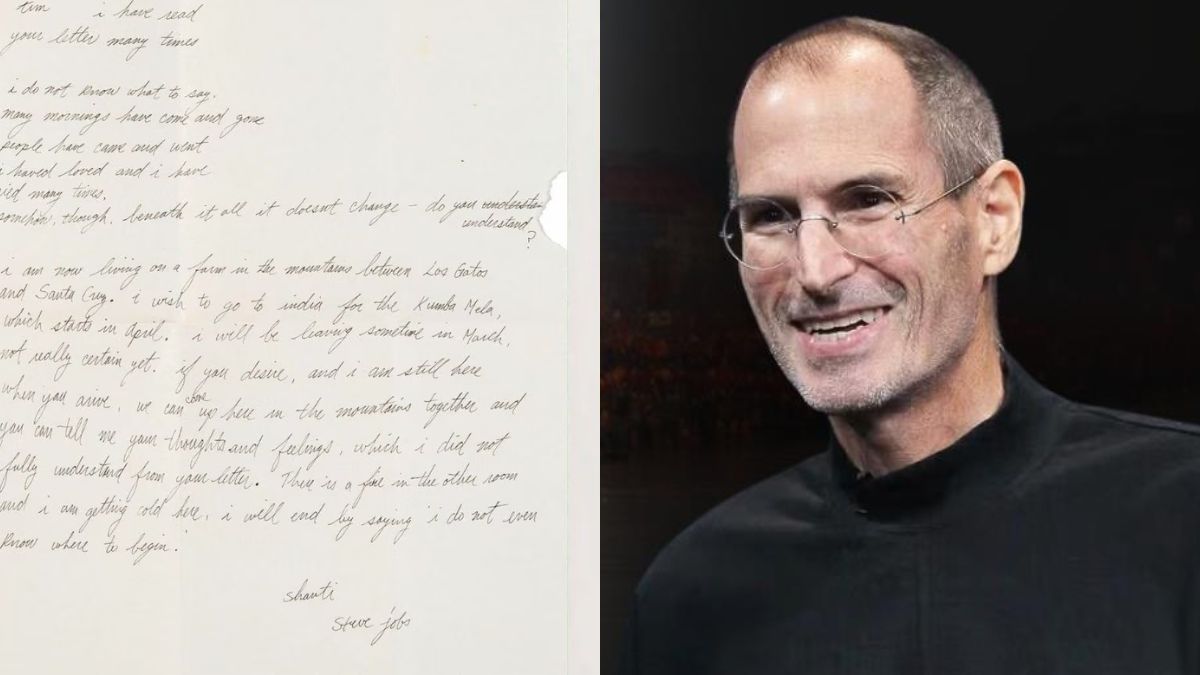 tim i have read
your letter many times
i do not know what to say.
many mornings have come and gone
people have came and went
i haved loved and i have
ied many times.
somehow, though, beneath it all it doesnt change - do you understan
understand
?
i am now living on a farm in the mountains between Los Gatos
and Santa Cruz. i wish to go to india for the Kumba Mela,
which starts in april. i will be leaving sometime in March,
not really certain yet. if you desire, and i am still here
when you arive, we can come up here in the mountains together and
you can tell me your thoughts and feelings, which i did not
fully understand from your letter. There is a fire in the other room
and i am getting cold here. i will end by saying 'i do not even
know where to begin.'
shanti
steve jobs